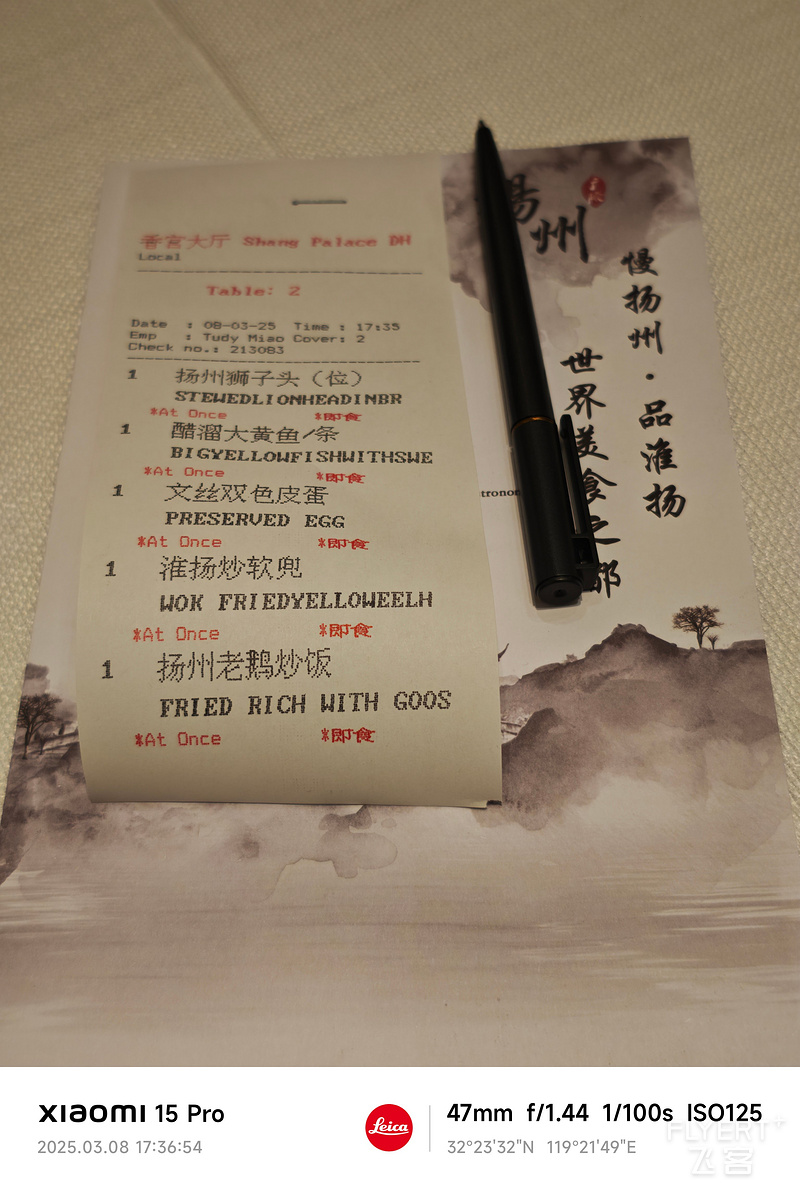 香宫大厅 Shang Palace DH
Local
Table: 2
Date : 08-03-25 Time : 17:35
Emp : Tudy Miao Cover: 2
Check no.: 213083
1 扬州狮子头（位）
STEWEDLIONHEADINBR
*At Once *即食
1 醋溜大黄鱼/条
BIGYELLOWFISHWITHSWE
*At Once *即食
1 文丝双色皮蛋
PRESERVED EGG
*At Once *即食
1 淮扬炒软兜
WOK FRIEDYELLOWEELH
*At Once *即食
1 扬州老鹅炒饭
FRIED RICH WITH GOOS
*At Once *即食
揚州
慢扬州·品淮扬
世界美食之都
tronom
xiaomi 15 Pro
2025.03.08 17:36:54
Leica
47mm f/1.44 1/100s ISO125
32°23'32"N 119°21'49"E
FLYERT+
飞客